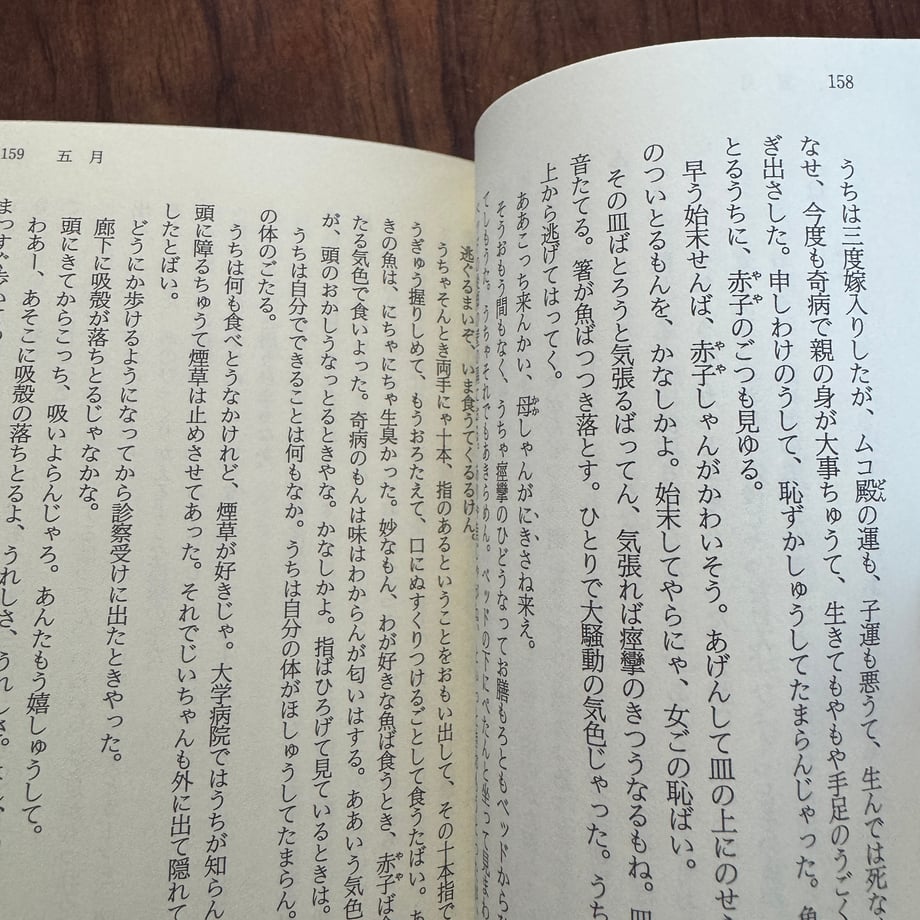 158
うちは三度嫁入りしたが、ムコ殿の運も、子運も悪うて、生んでは死な
なせ、今度も奇病で親の身が大事ちゅうて、生きてもやもや手足のうごく
ぎ出さした。申しわけのうして、恥ずかしゅうしてたまらんじゃった。魚
とるうちに、赤子のごつも見ゆる。
早う始末せんば、赤子しゃんがかわいそう。あげんして皿の上にのせら
のついとるもんを、かなしかよ。始末してやらにゃ、女ごの恥ばい。
その皿ばとろうと気張るばってん、気張れば痙攣のきつうなるもね。皿
音たてる。箸が魚ばつつき落とす。ひとりで大騒動の気色じゃった。うち
上から逃げてはってく。
ああこっち来んかい、母しゃんがにきさね来え。
そうおもう間もなく、うちゃ痙攣のひどうなってお膳もろともベッドから
てしもうた。うちゃそれでもあきらめん。ベッドの下にぺたんと坐って
159 五月
逃ぐるまいぞ、いま食うてくるるけん。
うちゃそんとき両手にゃ十本、指のあるということをおもい出して、その十本指で
うぎゅう握りしめて、もうおろたえて、口にぬすくりつけるごとして食うたばい。あ
きの魚は、にちゃにちゃ生臭かった。妙なもん、わが好きな魚ば食うとき、赤子ば食
たる気色で食いよった。奇病のもんは味はわからんが匂いはする。ああいう気色
が、頭のおかしうなっとるときやな。かなしかよ。指ばひろげて見ているときは。
うちは自分でできることは何もなか。うちは自分の体がほしゅうしてたまらん。
の体のごたる。
うちは何も食べとうなかけれど、煙草が好きじゃ。大学病院ではうちが知らん
頭に障るちゅうて煙草は止めさせてあった。それでじいちゃんも外に出て隠れて
したとばい。
どうにか歩けるようになってから診察受けに出たときやった。
廊下に吸殻が落ちとるじゃなかな。
頭にきてからこっち、吸いよらんじゃろ。あんたもう嬉しゅうして。
わあー、あそこに吸殻の落ちとるよ、うれしさ、うれしさ。